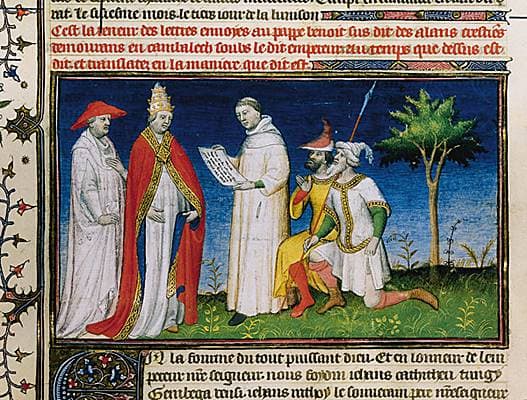 rat. le sisiesme mois. le tiers iour de la lunison
Cest la teneur des lettres enuoyes au pape benoit sus dit des alans crestiens
demourans en cambalech soubs le dit empereur. Au temps que dessus est
dit. et translatee en la maniere que dit est.
En la fourme du tout puissant dieu. Et en lonneur de lem
pereur nr̃e seigneur. nous foydin iehans cathichen tungy
Gembega iehans le souuerain pere nr̃e seigneur